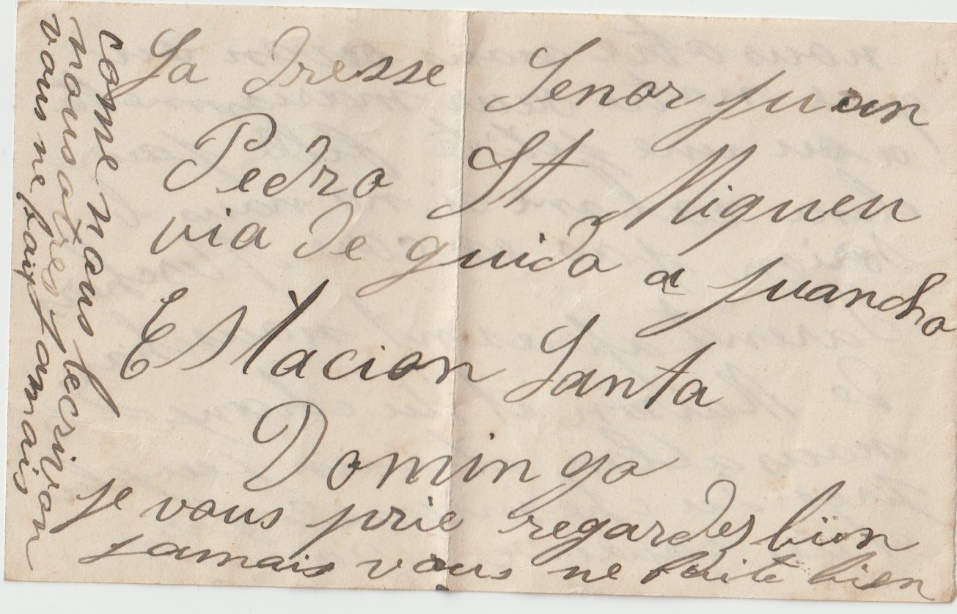 La Dresse Senor Juan
Pedro St Miguen
via de guido a Juancho
Estacion Santa
Domingo
je vous prie regardez bion
jamais vous ne faite bien
come nous lecrivon
nousotres
vous ne faip jamais